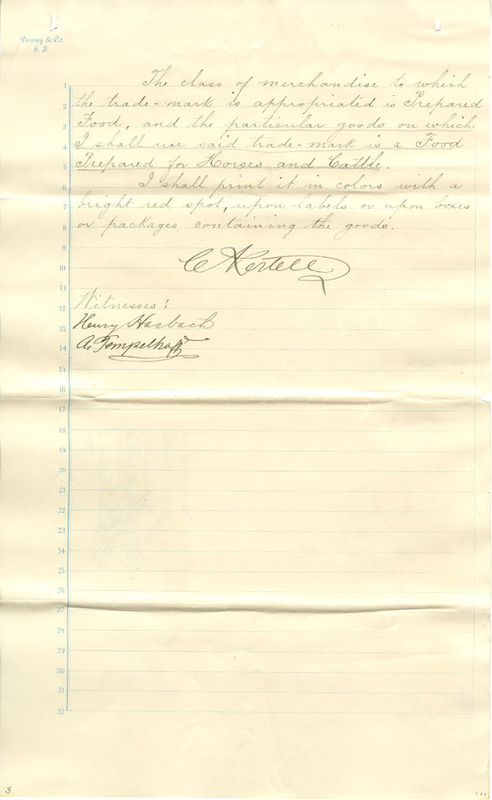 Dewey & Co.
S. F.
1 The class of merchandise to which
2 the trade-mark is appropriated is Prepared
3 Food, and the particular goods on which
4 I shall use said trade-mark is a Food
5 Prepared for Horses and Cattle.
6 I shall print it in colors with a
7 bright red spot, upon labels or upon boxes
8 or packages containing the goods.
9
10 C Kertell
11
12 Witnesses:
13 Henry Hasbach
14 A. Tempelhoff
15
16
17
18
19
20
21
22
23
24
25
26
27
28
29
30
31
32
3